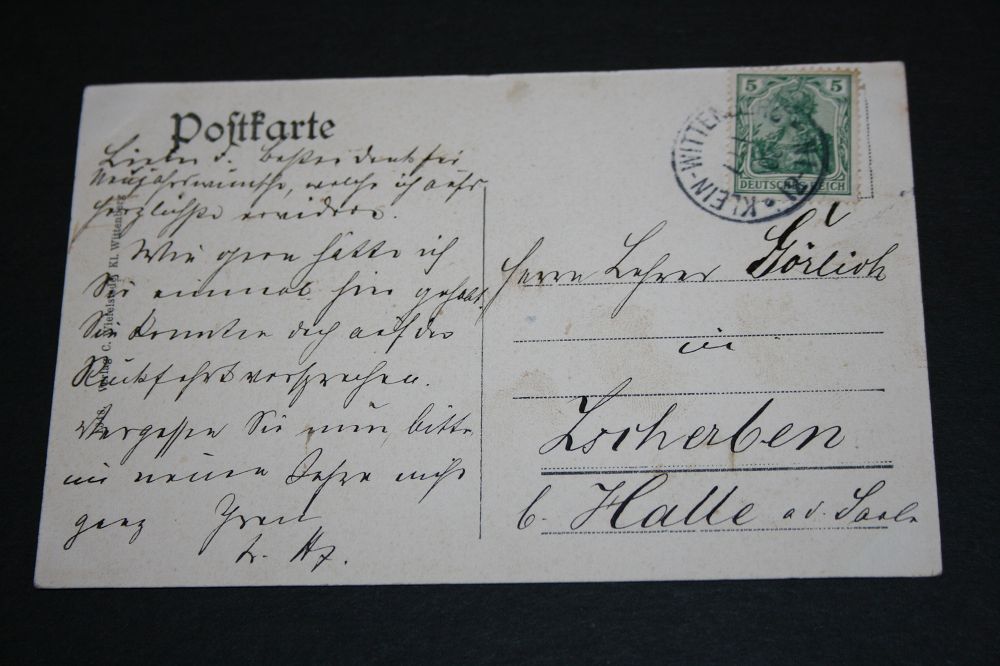 Postkarte
Lieber d. besten dank für
Neujahrswünsche, welche ich aufs
herzlichste erwidere.
Wie gern hätte ich
Sie einmal hier gehabt.
Sie konnten doch auf der
Rückfahrt vorsprechen.
Vergessen Sie nun bitte
im neuen Jahre nicht
ganz Ihren
Verlag C. Kl. Wittenberg
5 5
DEUTSCHES REICH
KLEIN-WITTEN
Herrn Lehrer Görlich
in
Zscherben
b. Halle a. d. Saale